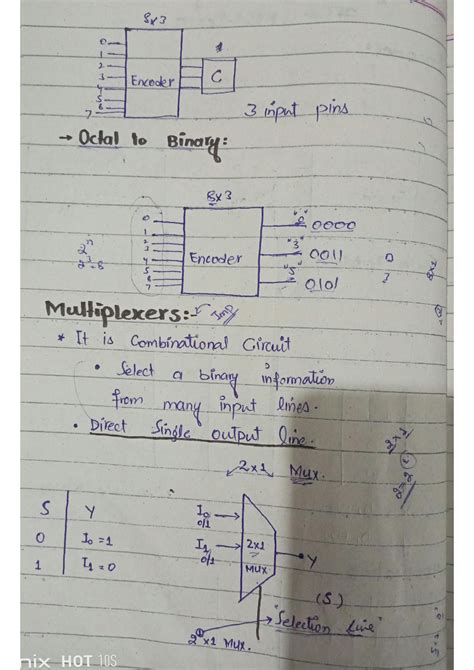 8x3
0
1
2
3
4
5
6
7
Encoder
C
3 input pins
→ Octal to Binary:
8x3
0
1
2
3
4
5
6
7
Encoder
"0" 0000
"3" 0011
"5" 0101
2^n
2^3=8
Multiplexers:- Imp
* It is Combinational Circuit
• Select a binary information
from many input lines.
• Direct Single output line.
2x1 Mux.
S Y
0 I0=1
1 I1=0
I0
0/1
I1
0/1
2x1
MUX
Y
(S)
"Selection Line"
2^1 x1 Mux.
HOT 10S